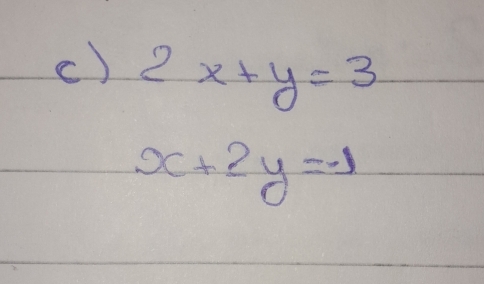 c) 2x+y=3
x+2y=-1